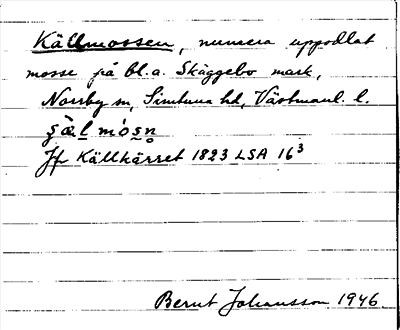 Källmossen, numera uppodlat
mosse på bl.a. Skäggebo mark,
Norrby sn, Simtuna hd, Västmanl. l.
Jfr Källkärret 1823 LSA 16³
Bernt Johansson 1946.